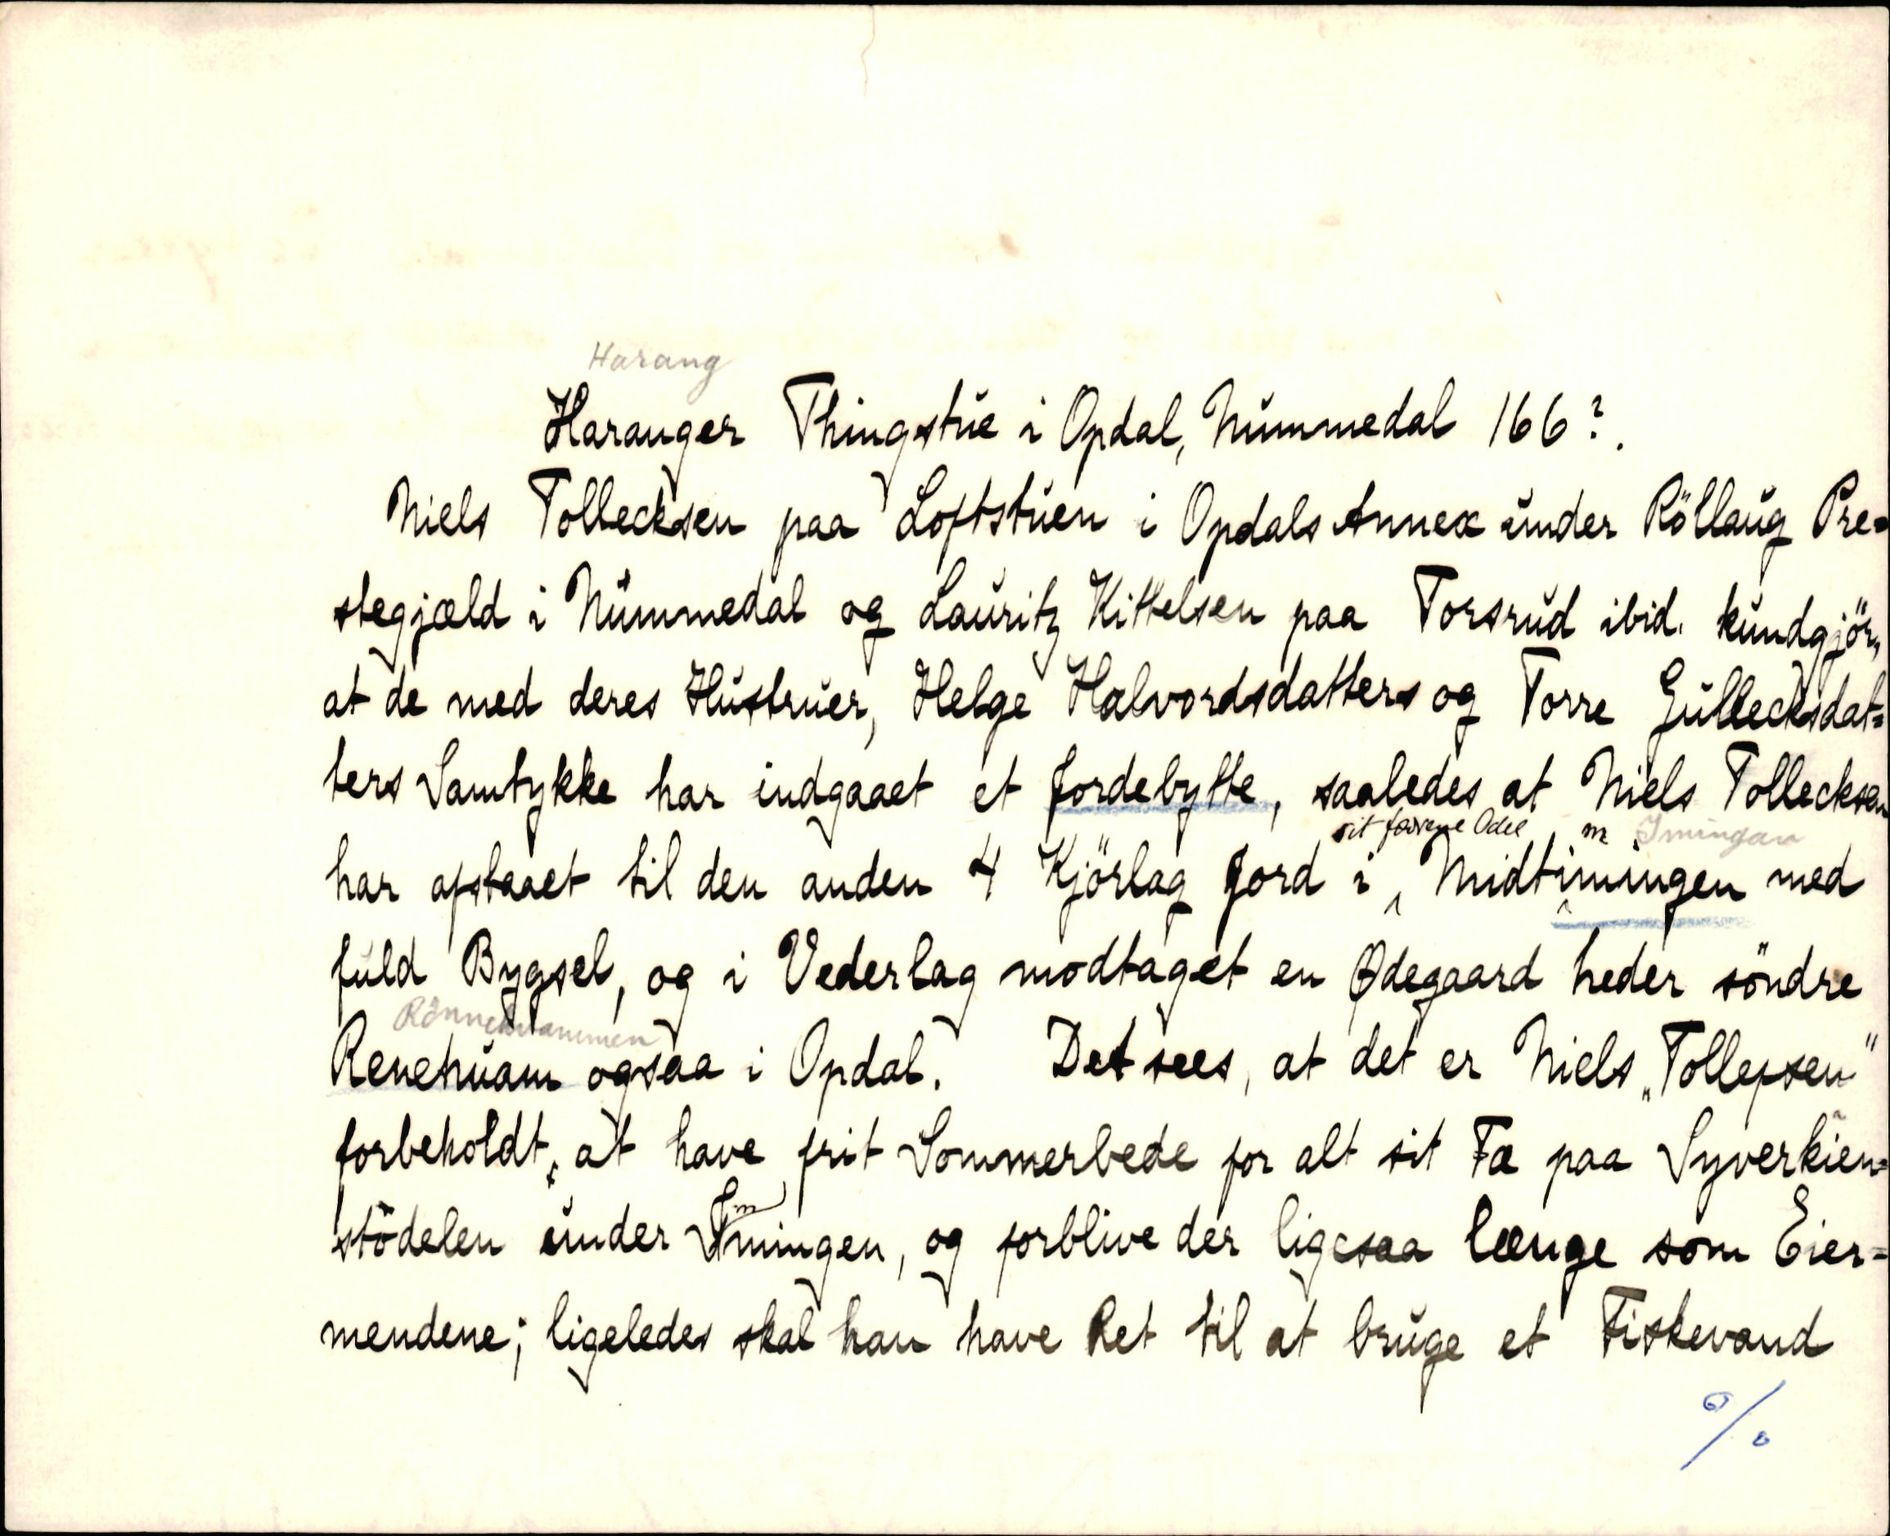 Harang
Haranger Thingstue i Opdal, Nummedal 166?.
Niels Tollecksen paa Loftstuen i Opdals Annex under Röllaug Pre=
stegjæld i Nummedal og Lauritz Kittelsen paa Torsrud ibid. kundgjör,
at de med deres Hustruer, Helge Halvordsdatters og Torre Gullecksdat=
ters Samtykke har indgaaet et Jordebytte, saaledes at Niels Tollecksen
sit farene Odel m Imingan
har afstaaet til den anden 4 Kjörlag Jord i Midtimingen med
fuld Bygsel, og i Vederlag modtaget en Ødegaard heder söndre
Rönnehvammen
Renehuam ogsaa i Opdal. Det sees, at det er Niels „Tollefsen"
forbeholdt, at have frit Sommerbede for alt sit Fæ paa Syverkien=
m
stödelen under Imingen, og forblive der ligesaa længe som Eier=
mendene; ligeledes skal han have Ret til at bruge et Fiskevand
%